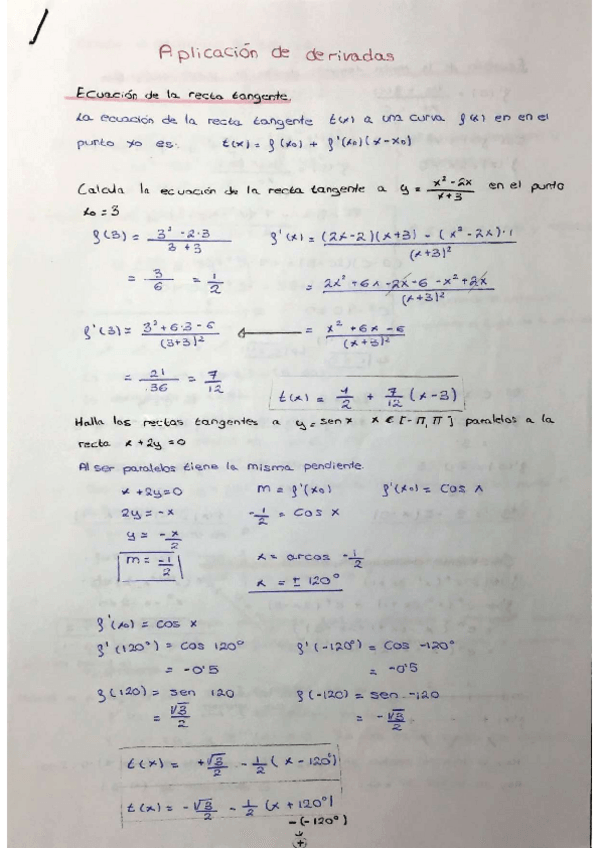 Aplicación de derivadas
Ecuación de la recta tangente.
La ecuación de la recta tangente t(x) a una curva f(x) en en el
punto xo es: t(x) = f(x0) + f'(x0)(x-x0)
Calcula la ecuación de la recta tangente a y = (x² - 2x)/(x+3) en el punto
x0 = 3
f(3) = (3² - 2·3)/(3+3) f'(x) = ((2x-2)(x+3) - (x² - 2x)·1)/(x+3)²
= 3/6 = 1/2 = (2x² + 6x - 2x - 6 - x² + 2x)/(x+3)²
f'(3) = (3² + 6·3 - 6)/(3+3)² ← = (x² + 6x - 6)/(x+3)²
= 21/36 = 7/12 t(x) = 1/2 + 7/12 (x-3)
Halla las rectas tangentes a y = sen x x ∈ [-π, π] paralelas a la
recta x + 2y = 0
Al ser paralelas tiene la misma pendiente.
x + 2y = 0 m = f'(x0) f'(x0) = cos x
2y = -x -1/2 = cos x
y = -x/2
m = -1/2 x = arcos -1/2
x = ± 120°
f'(x0) = cos x
f'(120°) = cos 120° f'(-120°) = cos -120°
= -0'5 = -0'5
f(120) = sen 120 f(-120) = sen -120
= √3/2 = -√3/2
t(x) = +√3/2 - 1/2 (x - 120°)
t(x) = -√3/2 - 1/2 (x + 120°)
-(-120°)
+